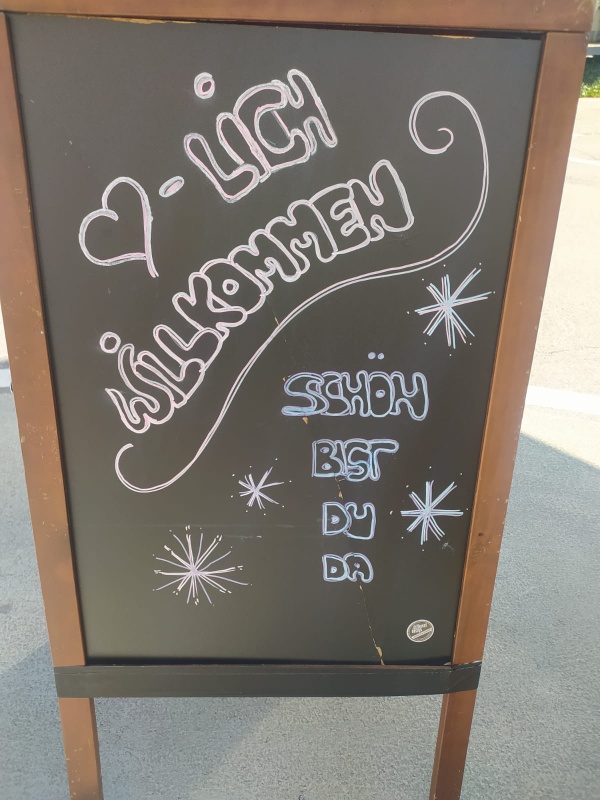 ♥-LICH
WILLKOMMEN
SCHÖN
BIST
DU
DA